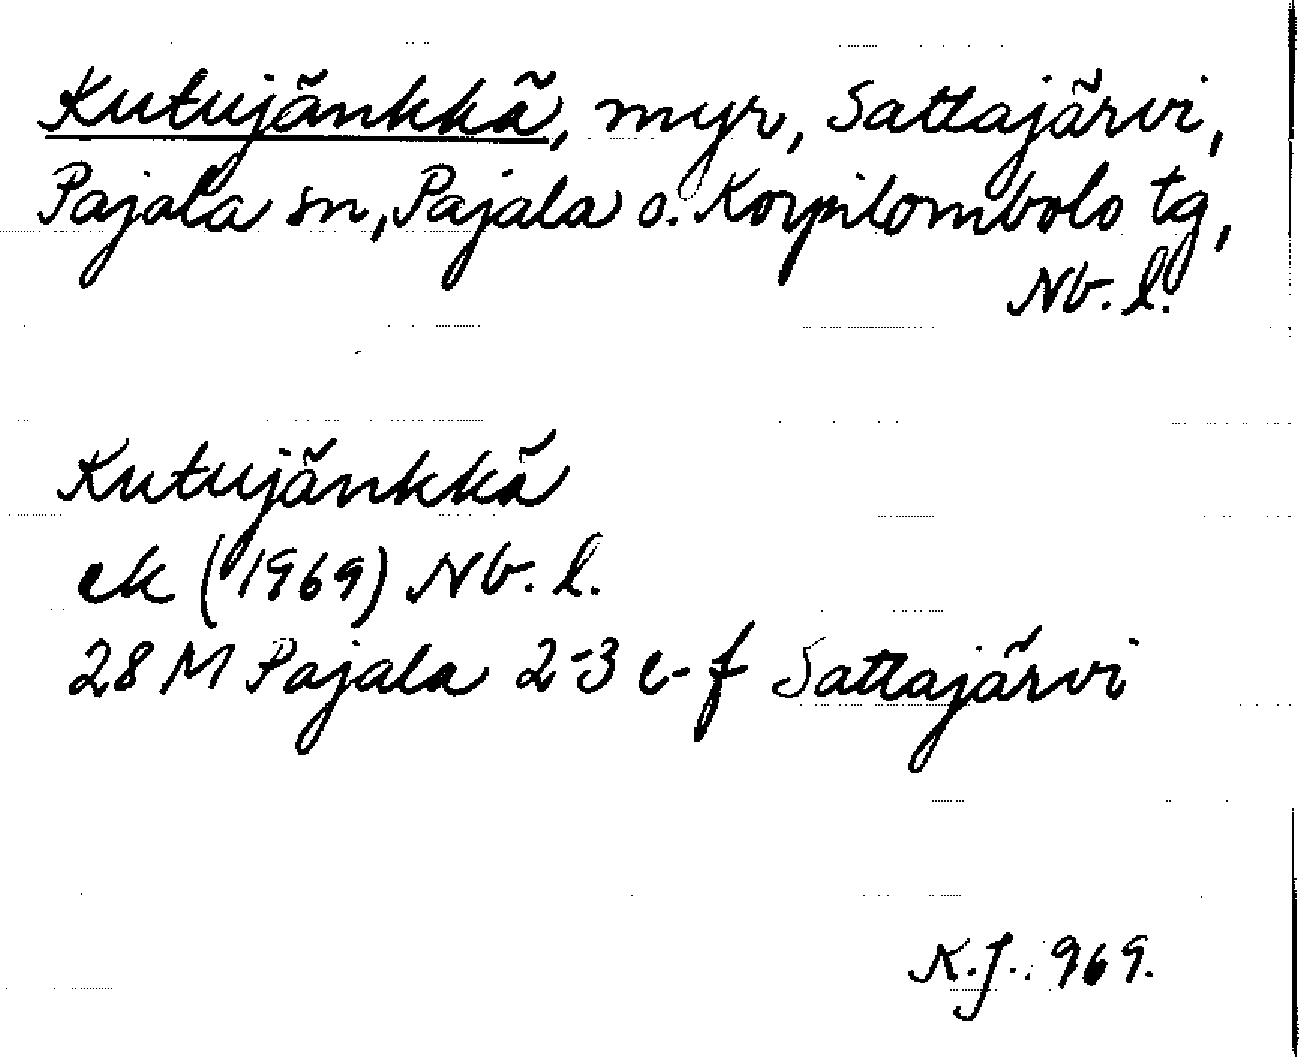 Kutujänkkä, myr, Sattajärvi,
Pajala sn, Pajala o. Korpilombolo tg,
Nb. l.
Kutujänkkä
ek (1969) Nb. l.
28 M Pajala 2-3 e-f Sattajärvi
K.J. 969.